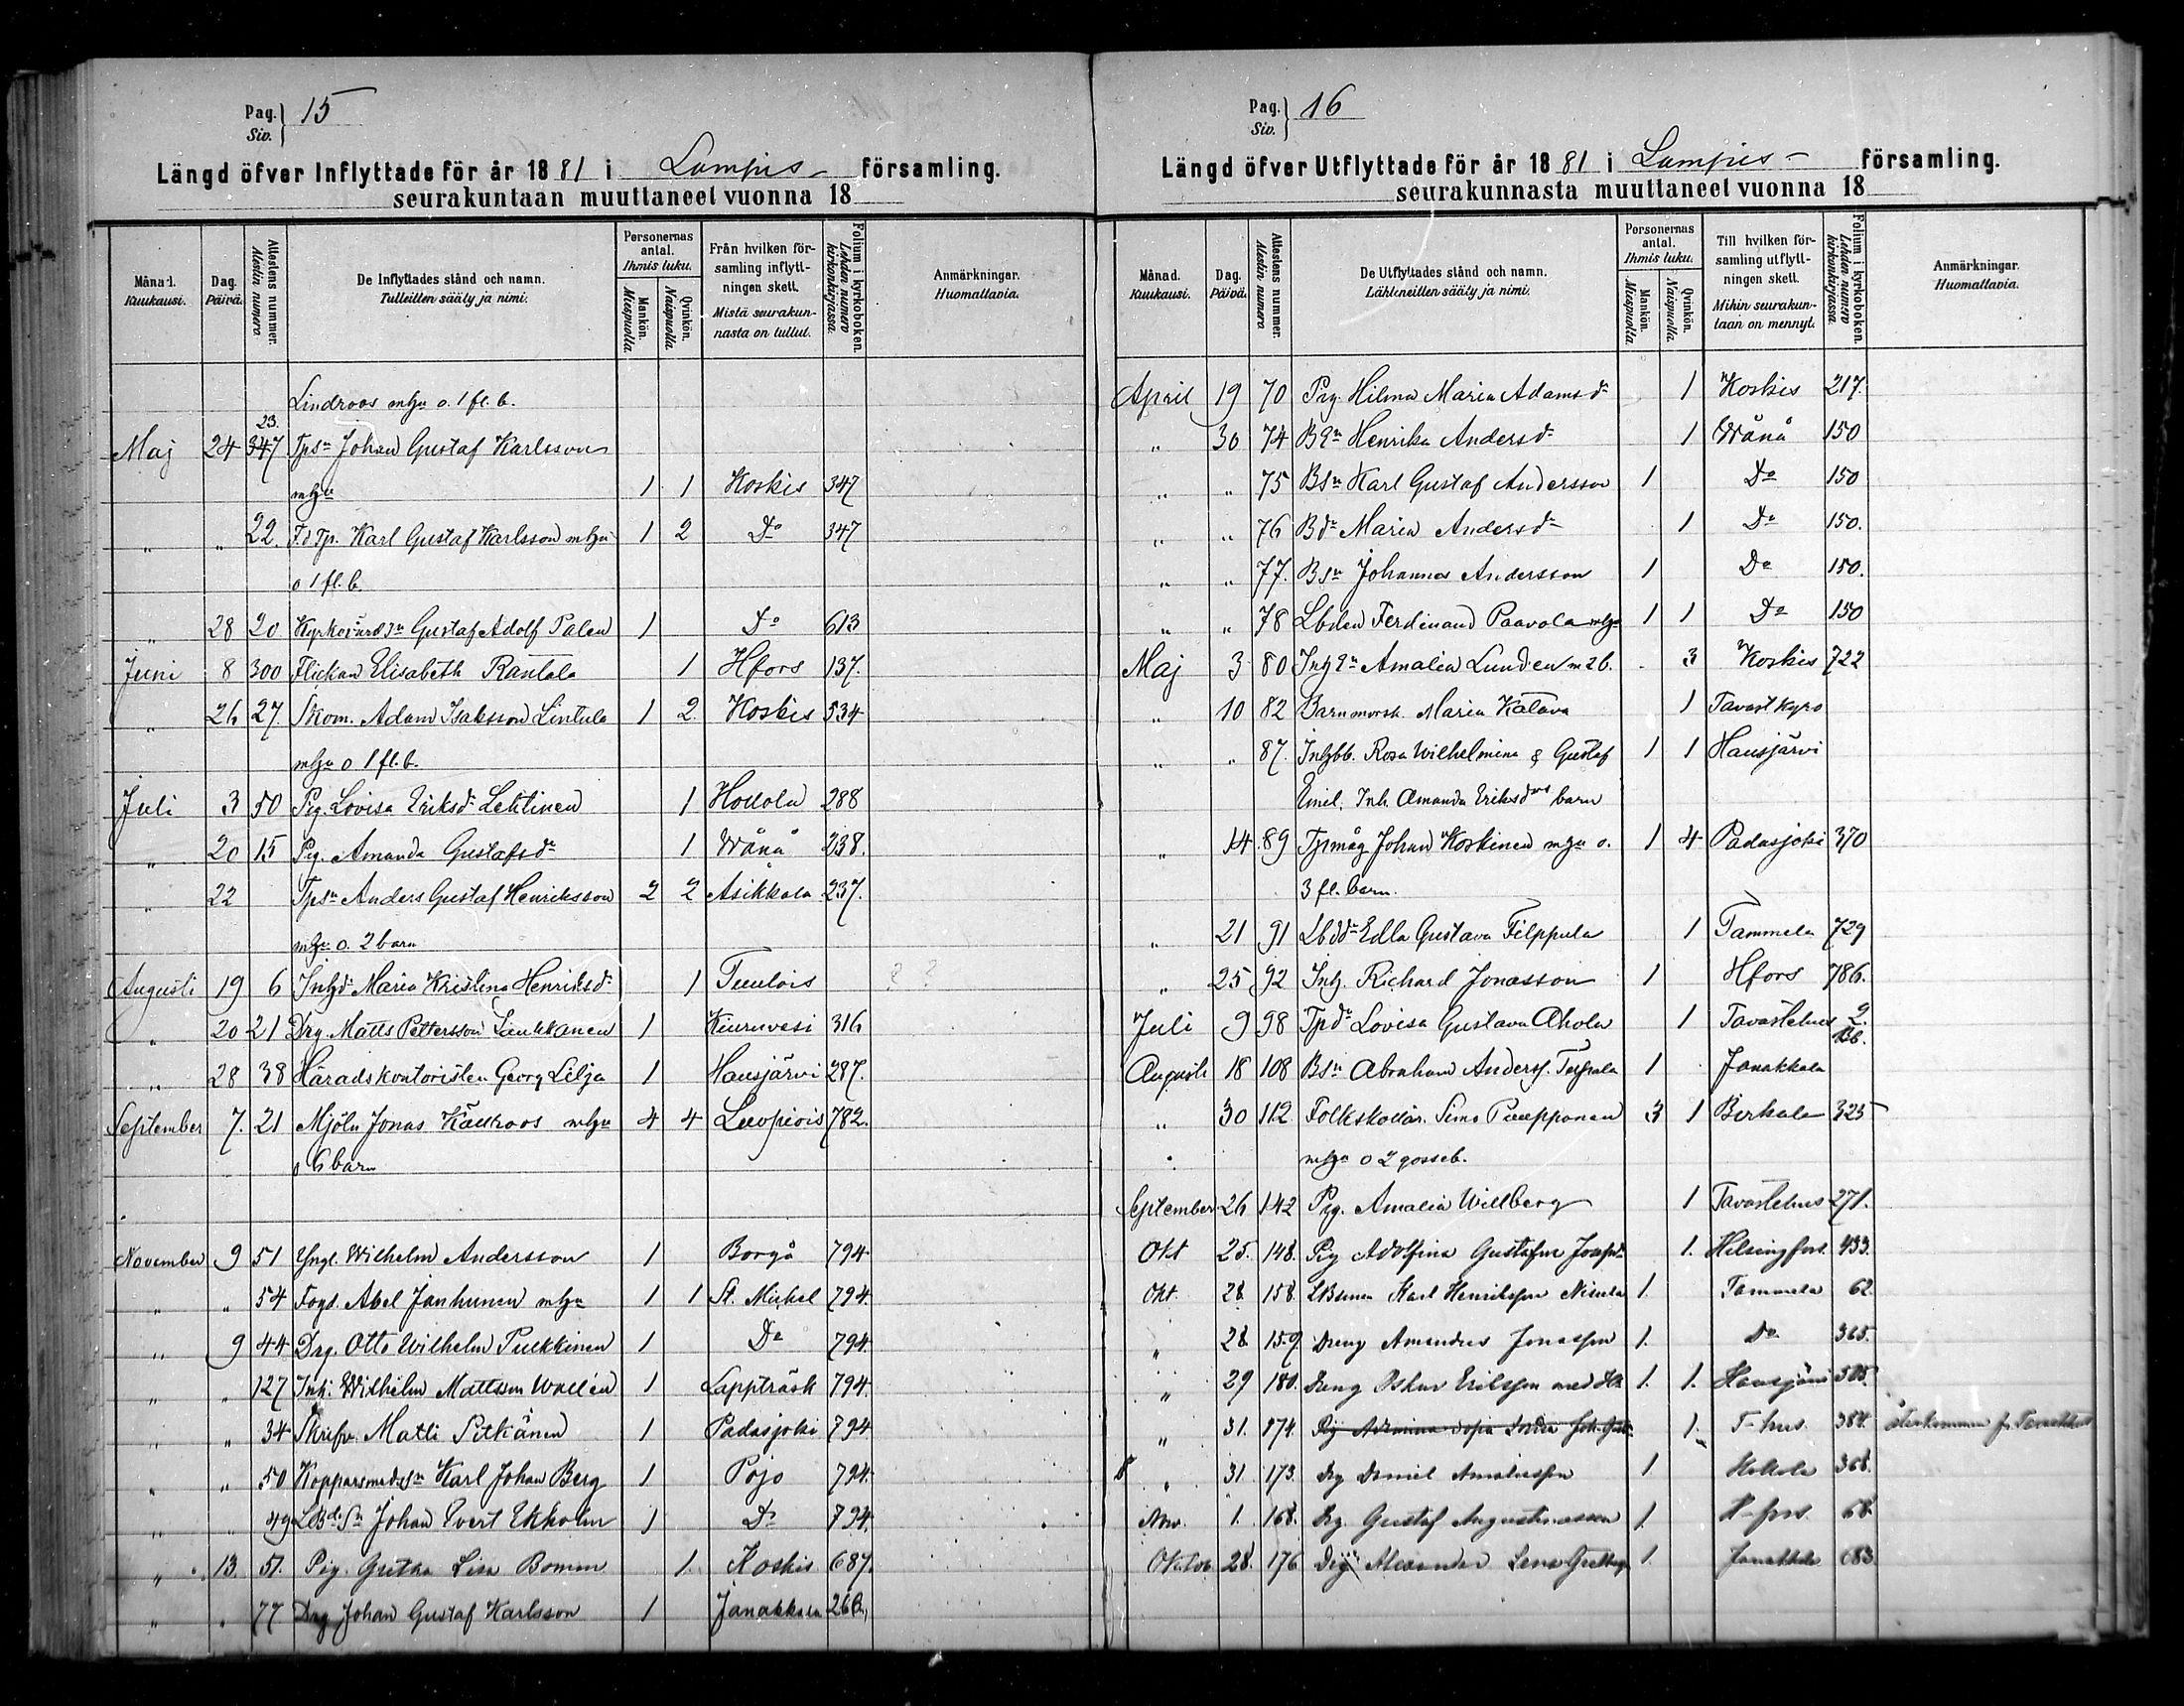 Pag. 15
Siv.
Längd öfver Inflyttade för år 1881 i Lampis församling.
seurakuntaan muuttaneet vuonna 18
Månad. Kuukausi. Dag. Päivä. Attestens nummer. Atestin numero De Inflyttades stånd och namn. Tulleitten sääty ja nimi. Personernas antal. Ihmis luku. Mankön. Miespuolia Qvinkön. Naispuolia. Från hvilken församling inflyttningen skett. Mistä seurakunnasta on tullut. Folium i kyrkoboken. Lehden numero kirkonkirjassa. Anmärkningar. Huomattavia.
Lindroos mhu o. 1 fl. b.
23.
Maj 24 347 Tpsn Johan Gustaf Karlsson
mhu 1 1 Koskis 347
" " 22. F.d Tp. Karl Gustaf Karlsson mhu 1 2 Do 347
o 1 fl. b.
" 28 20 Kyrkovärdsn Gustaf Adolf Palen 1 Do 613
Juni 8 300 Flickan Elisabeth Rantala 1 Hfors 137.
" 26 27. Skom. Adam Isaksson Lintula 1 2 Koskis 534
mhu o 1 fl. b.
Juli 3 50 Pig. Lovisa Eriksdr Lehtinen 1 Hollola 288
" 20 15 Pig. Amanda Gustafsdr 1 Wånå 238.
" 22 Tpsn Anders Gustaf Henriksson 2 2 Asikkala 237.
mhu o. 2 barn
Augusti 19 6 Inhdr Maria Kristina Henriksdr 1 Tuulois ? ?
" 20 21 Drg. Matts Pettersson Laukkanen 1 Kiuruvesi 316
" 28 38 Häradskontoristen Georg Lilja 1 Hausjärvi 287.
September 7. 21 Mjöln Jonas Källroos mhu 4 4 Luopiois 782.
o 6 barn
November 9 51 Yngl. Wilhelm Andersson 1 Borgå 794
" " 54 Fogd. Abel Janhunen mhu 1 1 St. Michel 794.
" 9 44 Drg. Otto Wilhelm Pulkkinen 1 Do 794.
" " 127 Inh. Wilhelm Mattsson Wallén 1 Lappträsk 794.
" " 34 Skrifv. Matti Pitkänen 1 Padasjoki 794.
" " 50 Kopparsmedssn Karl Johan Berg 1 Pojo 794.
" " 49 LBdsn Johan Evert Ekholm 1 Do 794.
" 13. 51. Pig. Gretha Lisa Bomm 1. Koskis 687.
" " 77 Drg Johan Gustaf Karlsson 1 Janakkala 266.
Pag. 16
Siv.
Längd öfver Utflyttade för år 1881 i Lampis församling.
seurakunnasta muuttaneet vuonna 18
Månad. Kuukausi. Dag. Päivä. Attestens nummer. Atestin numero De Utflyttades stånd och namn. Lähteneitten sääty ja nimi. Personernas antal. Ihmis luku. Mankön. Miespuolia Qvinkön. Naispuolia. Till hvilken församling utflyttningen skett. Mihin seurakuntaan on mennyt. Folium i kyrkoboken. Lehden numero kirkonkirjassa. Anmärkningar. Huomattavia.
April 19 70 Pig. Hilma Maria Adamsdr 1 Koskis 217.
" 30 74 Henrika Andersdr 1 Wånå 150
" " 75 Bsn Karl Gustaf Andersson 1 Do 150
" " 76 Bdr Maria Andersdr 1 Do 150.
" " 77. Bsn Johannes Andersson 1 Do 150.
" " 78 Lbden Ferdinand Paavola mhu 1 1 Do 150
Maj 3 80 Amalia Lunden m 2 b. 3 Koskis 722
" 10 82 Barnmorsk. Maria Katava 1 Tavastkyro
" " 87. Inhbb. Rosa Wilhelmina & Gustaf 1 1 Hausjärvi
Emil, Inh. Amanda Eriksdrs barn
" 14 89 Tpmåg Johan Koskinen mhu o. 1 4 Padasjoki 370
3 fl. barn.
" 21 91 Lbddr Edla Gustava Filppula 1 Tammela 729
" 25 92 Inh. Richard Jonasson 1 Hfors 786.
Juli 9 98 Tpdr Lovisa Gustava Ahola 1 Tavastehus 2.
Augusti 18 108 Bsn Abraham Anderss. 1 Janakkala
" 30 112 Folkskollär. Simo Puupponen 3 1 Birkala 325
" mhu o 2 gosseb.
September 26 142 Pig. Amalia Willberg 1 Tavastehus 271.
Okt 25. 148. Pig Adolfina Gustafva Josefsdr 1. Helsingfors. 433.
Okt. 28 158. Karl Henriksson Nisula 1. Tammela 62.
" 28. 159. Dreng Amandus Jonasson 1. Do 365.
" 29 180. Dreng Oskar Eriksson med 1. 1. Hausjärvi 505.
" 31. 174. Pig 1. T-hus. 384. återkommen fr. Tavastehus
" 31 173. Drg Daniel Amaliasson 1 Hollola 368.
Nov. 1. 168. Drg. Gustaf Augustinusson 1. H-fors. 68.
Oktob 28. 176 Alexander 1. Janakkala 683.